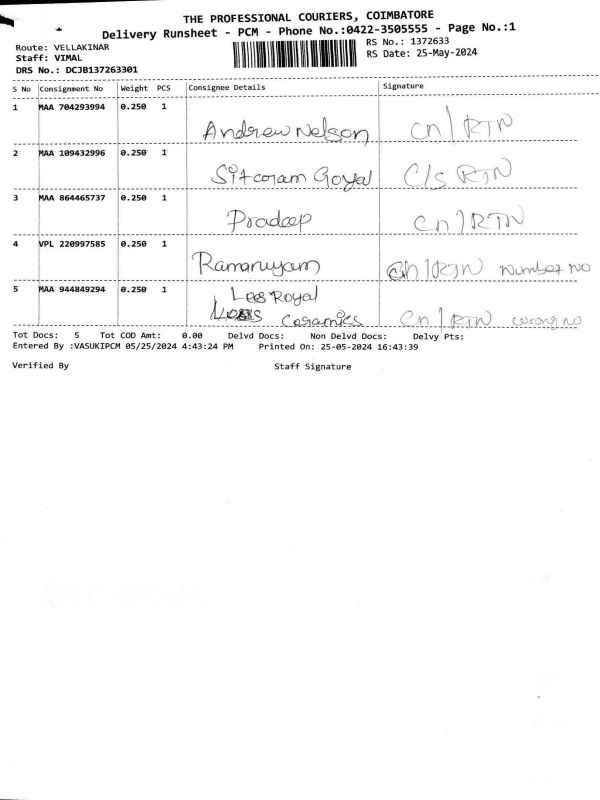 THE PROFESSIONAL COURIERS, COIMBATORE
Delivery Runsheet - PCM - Phone No.:0422-3505555 - Page No.:1
Route: VELLAKINAR RS No.: 1372633
Staff: VIMAL RS Date: 25-May-2024
DRS No.: DCJB137263301
S No Consignment No Weight PCS Consignee Details Signature
1 MAA 704293994 0.250 1 Andrew Nelson Cn/RTN
2 MAA 109432996 0.250 1 Sitaram Goyal C/s RTN
3 MAA 864465737 0.250 1 Pradeep Cn/RTN
4 VPL 220997585 0.250 1 Ramanuyam Cn/RTN Number NO
5 MAA 944849294 0.250 1 Lees Royal
Ceramics Cn/RTN wrong no
Tot Docs: 5 Tot COD Amt: 0.00 Delvd Docs: Non Delvd Docs: Delvy Pts:
Entered By :VASUKIPCM 05/25/2024 4:43:24 PM Printed On: 25-05-2024 16:43:39
Verified By Staff Signature